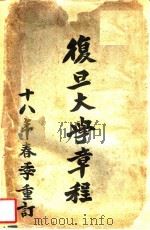 復旦大學章程
十八年春季重訂